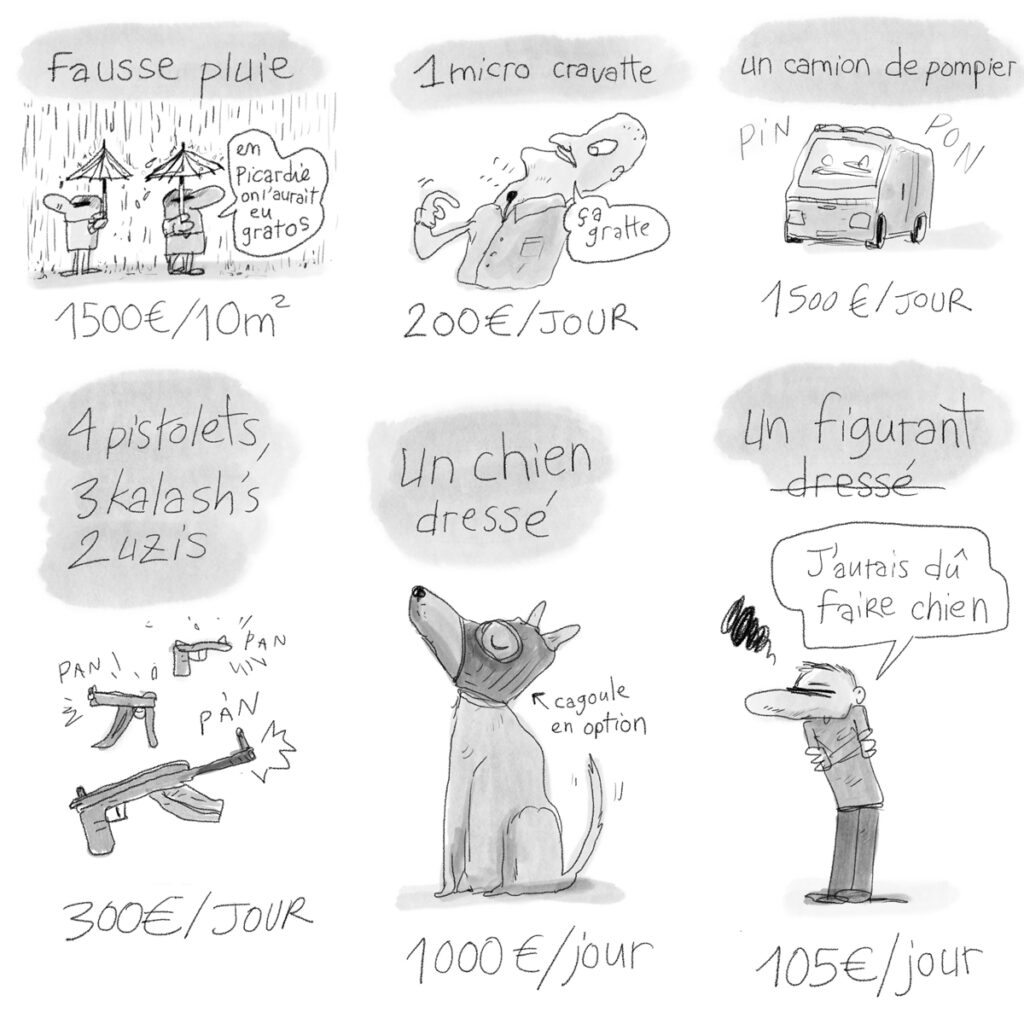 Fausse pluie
en
Picardie
on l'aurait
eu
gratos
1500€/10m²
1 micro cravatte
ça
gratte
200€/JOUR
un camion de pompier
PiN
PON
1500€/JOUR
4 pistolets,
3 kalash's
2 uzis
PAN
PAN!
PAN
300€/JOUR
un chien
dressé
cagoule
en option
1000€/jour
un figurant
dressé
J'aurais dû
faire chien
105€/jour